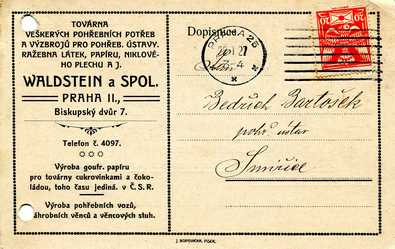 TOVÁRNA
VEŠKERÝCH POHŘEBNÍCH POTŘEB
A VÝZBROJŮ PRO POHŘEB. ÚSTAVY.
RAŽEBNA LÁTEK, PAPÍRU, NIKLOVÉ-
HO PLECHU A J.
WALDSTEIN a SPOL.
PRAHA II.,
Biskupský dvůr 7.
Telefon č. 4097.
Výroba goufr. papíru
pro továrny cukrovinkami a čoko-
ládou, toho času jediná v Č. S. R.
Výroba pohřebních vozů,
náhrobních věnců a věncových stuh.
Dopisnice
PRAHA 25
Bedřich Bartošek
pohř ústav
Smiřice